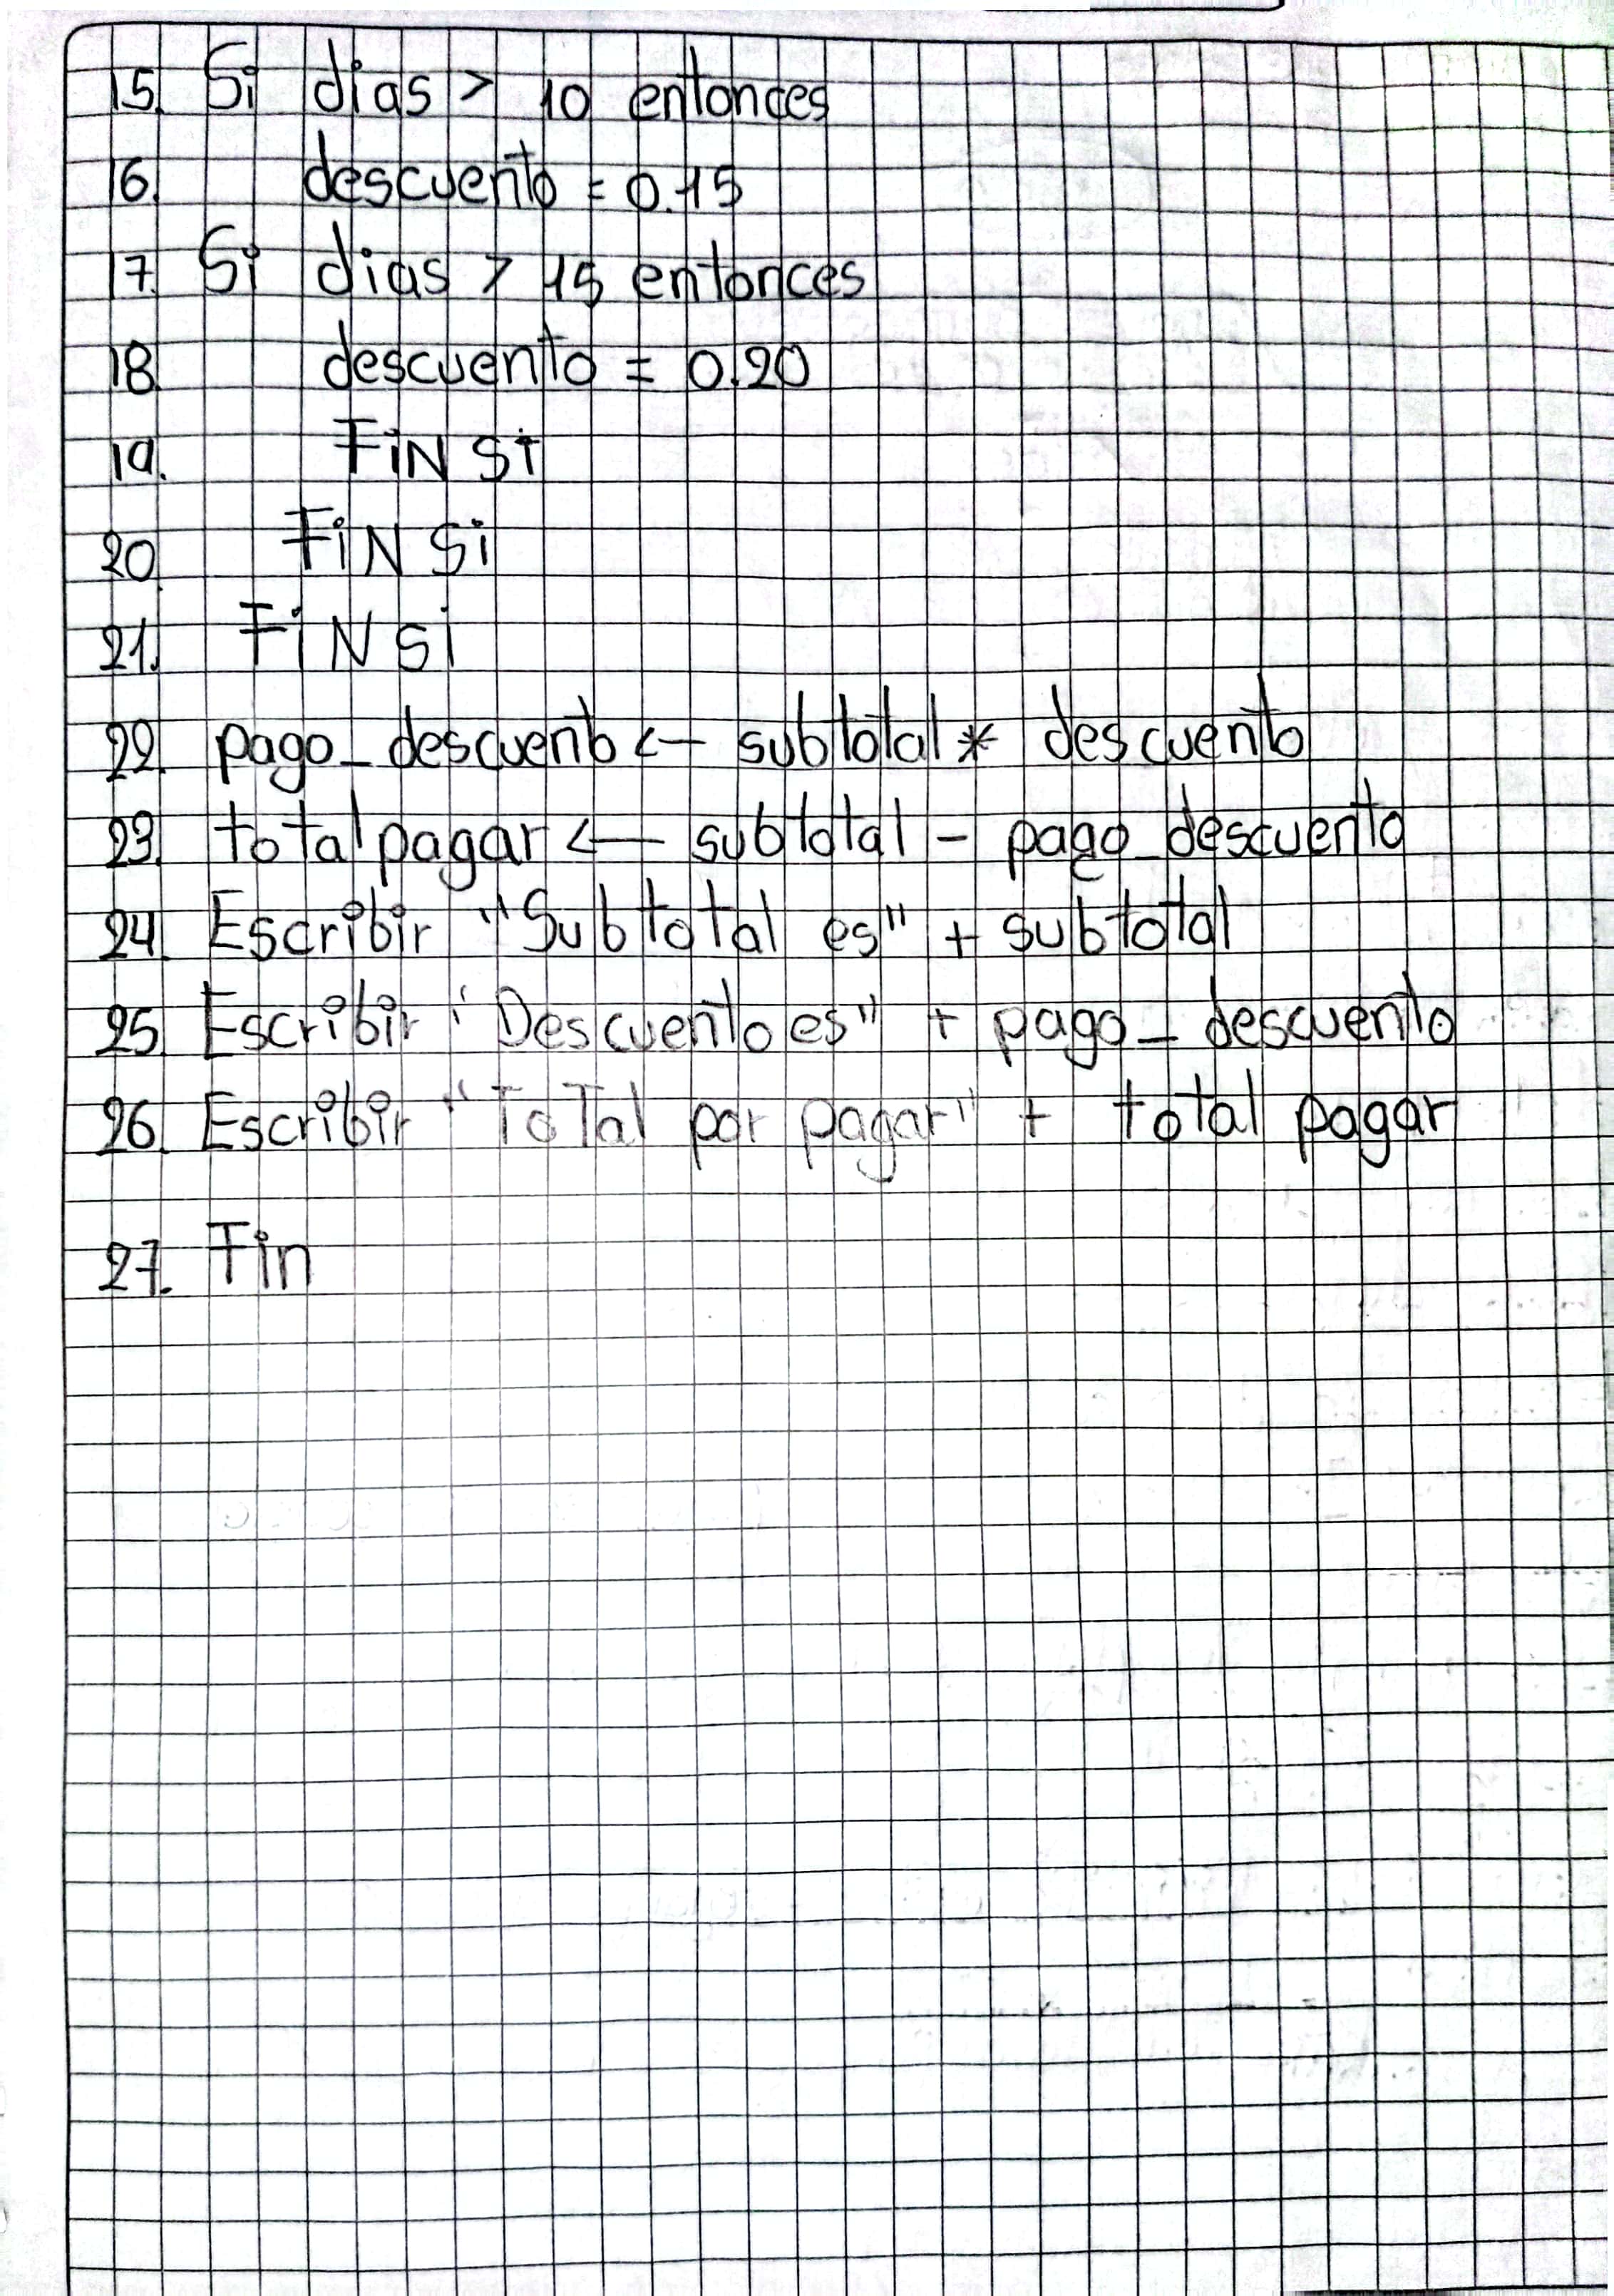 15. Si dias > 10 entonces
16. descuento = 0.15
17. Si dias > 15 entonces
18. descuento = 0.20
19. FiN Si
20. FiN Si
21. FiN Si
22. pago_descuento <- subtotal * descuento
23. total pagar <- subtotal - pago_descuento
24. Escribir "Subtotal es" + subtotal
25. Escribir "Descuento es" + pago_descuento
26. Escribir "ToTal por pagar" + total pagar
27. Fin